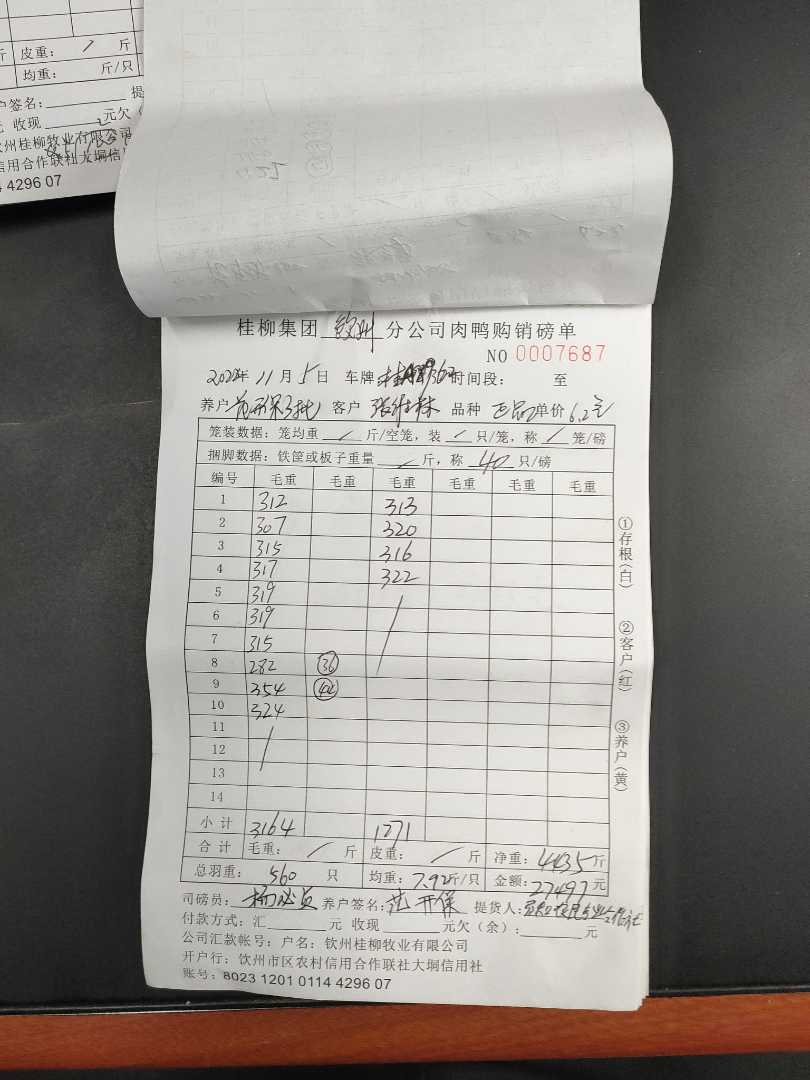 斤 皮重： / 斤
均重： 斤/只
户签名：
元 收现 元欠（
钦州桂柳牧业有限公司
信用合作联社大垌信用
4 4296 07
桂柳集团 钦州 分公司肉鸭购销磅单
NO 0007687
2022年 11月 5日 车牌 时间段： 至
养户 客户 张 林 品种 正品 单价 6.2元
笼装数据：笼均重 / 斤/空笼，装 / 只/笼，称 / 笼/磅
捆脚数据：铁筐或板子重量 / 斤，称 40 只/磅
编号 毛重 毛重 毛重 毛重 毛重 毛重
1 312 313
2 307 320
3 315 316
4 317 322
5 319 /
6 319
7 315
8 282 36
9 354 44
10 324
11 /
12
13
14
小计 3164 1271
合计 毛重： / 斤 皮重： / 斤 净重：4435斤
总羽重： 560 只 均重：7.92斤/只 金额：27497元
司磅员：杨 养户签名： 开保 提货人：
付款方式：汇 元 收现 元欠（余）： 元
公司汇款帐号：户名：钦州桂柳牧业有限公司
开户行：钦州市区农村信用合作联社大垌信用社
账号：8023 1201 0114 4296 07
①存根（白）
②客户（红）
③养户（黄）